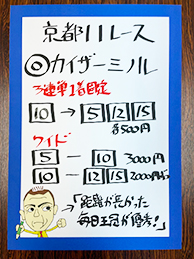 京都11レース
◎カイザーミノル
3連単1着固定
10 → 5 12 15
各500円
ワイド
5 — 10 3000円
10 — 12 15 2000円ずつ
→「距離が長かった
毎日王冠が優秀!」